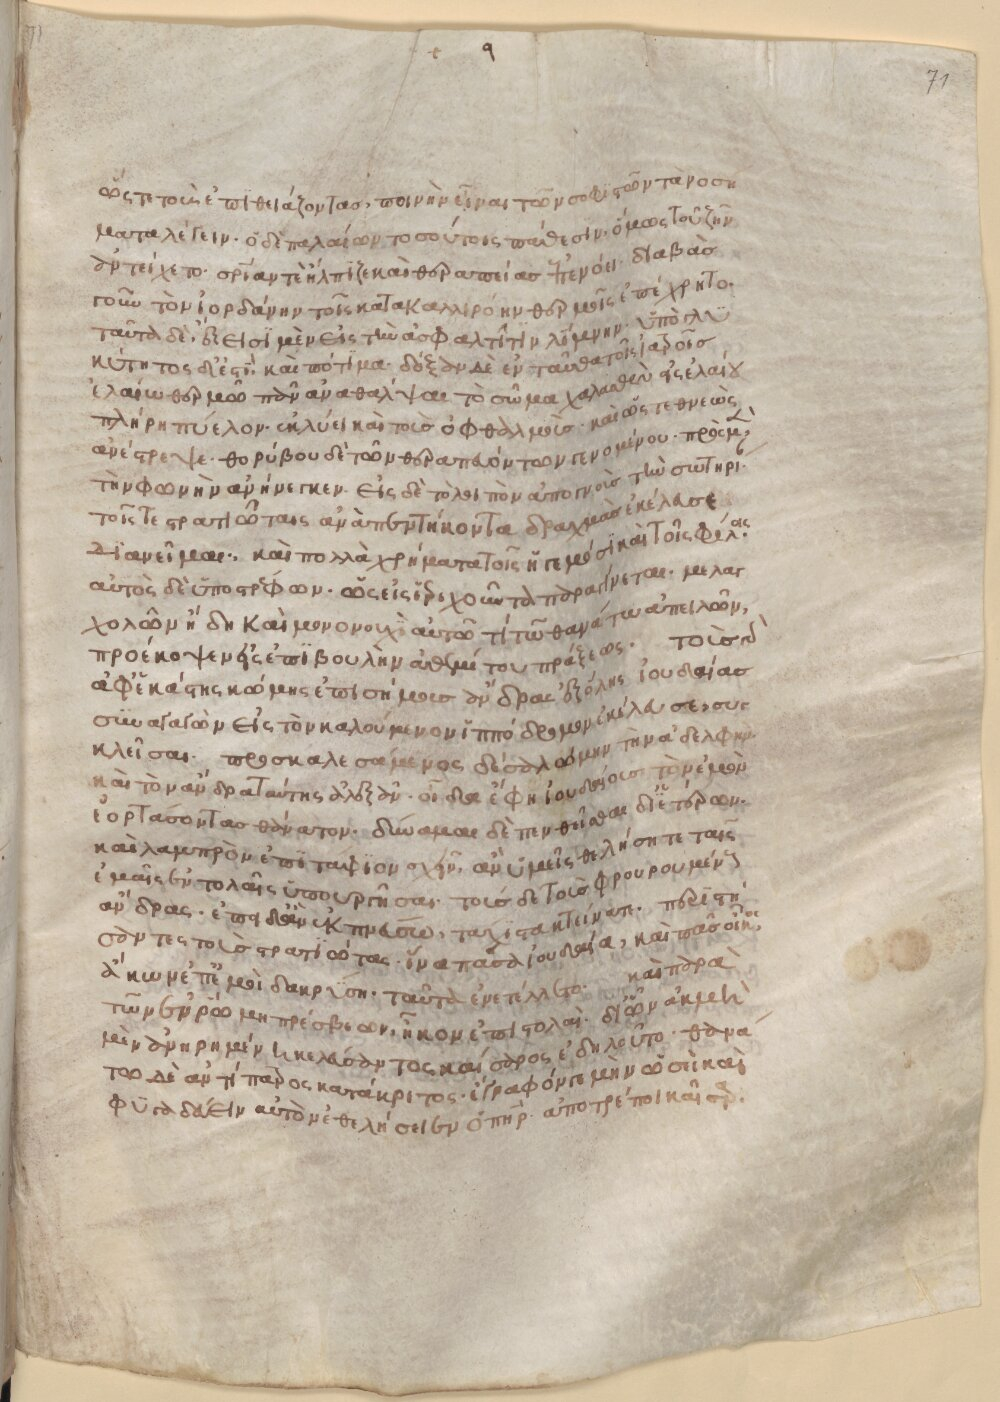 ὥς τε τοὺς ἐπιθειάζοντας, ποινὴν εἶναι τῶν σοφιστῶν τὰ νοσή
ματα λέγειν. ὁ δὲ παλαίων τοσούτοις πάθεσιν, ὅμως τοῦ ζῆν
ἀντείχετο. σρίαν τὲ ἤλπιζε καὶ θεραπείας ἐπενόει. διαβὰς
γοῦν τὸν ἰορδάνην τοῖς κατὰ καλλιρόην θερμοῖς ἐπέχρητο.
ταῦτα δὲ, ἔξεισϊ μὲν εἰς τὴν ἀσφαλτῖτϊν λίμνην. ὑπὸ γλυ
κύτητος δ' ἐστὶ καὶ πότϊμα. δόξαν δὲ ἐνταῦθα τοῖς ἰατροῖς
ἐλαίω θερμῶ πᾶν ἀναθάλψαι τὸ σῶμα χαλασθὲν εἰς ἐλαίου
πλήρη πύελον. ἐκλύει καὶ τοὺς ὀφθαλμοὺς. καὶ ὡς τεθνεὼς
ἀνέστρεψε. θορύβου δὲ τῶν θεραπευόντων γενομένου. πρὸς μὲν
τὴν φωνὴν ἀνήνεγκεν. εἰς δὲ τὸ λοιπὸν ἀπογνοὺς τὴν σωτηρι.
τοῖς τε στρατϊώταις ἀνὰ πεντήκοντα δραχμὰς ἐκέλευσε
διανεῖμαι, καὶ πολλὰ χρήματα τοῖς ἡγεμόσϊ καὶ τοῖς φίλοις
αὐτὸς δὲ ὑποστρέφων. ὡς εἰς ἱεριχοῦντα παραγίνεται. μελαγ
χολῶν ἤδη καὶ μονονουχὶ αὐτῶ τί τῶ θανάτω ἀπειλῶν,
προέκοψεν εἰς ἐπϊβουλὴν ἀθεμίτου πράξεως. τοὺς γὰρ
ἀφ' ἑκάστης κώμης ἐπισήμους ἄνδρας ἐξ ὅλης ἰουδαίας
συναγαγὼν εἰς τὸν καλούμενον ἱππόδρομον ἐκέλευσε, συγ
κλεῖσαι. προσκαλεσάμενος δὲ σαλώμην τὴν ἀδελφὴν
καὶ τὸν ἄνδρα ταύτης ἀλεξᾶν. οἶδα ἔφη ἰουδαίους τὸν ἐμὸν
ἑορτάσοντας θάνατον. δύναμαι δὲ πενθεῖσθαι δι' ἑτέρων.
καὶ λαμπρὸν ἐπϊτάφϊον σχεῖν, ἂν ὑμεῖς θελήσητε ταῖς
ἐμαῖς ἐντολαῖς ὑπουργῆσαι. τούσδε τοὺς φρουρουμένους
ἄνδρας. ἐπειδὰν ἐκπνεύσω, τάχϊστα κτείνατε. περιστή
σαντες τοὺς στρατϊώτας. ἵνα πᾶσα ἰουδαία, καὶ πᾶς οἶκος,
ἄκων ἐπ' ἐμοὶ δακρύση. ταῦτα ἐνετέλλετο. καὶ παρὰ
τῶν ἐν ῥώμη πρέσβεων, ἧκον ἐπιστολαὶ. δι' ὧν ἀκμὴ
μὲν ἀνηρημένη κελεύσαντος καίσαρος ἐδηλοῦτο. θανά
του δὲ ἀντίπατρος κατάκριτος. ἔγραφόν γε μὴν ὡς εἰ καὶ
φυγαδεύειν αὐτὸν ἐθελήσειεν ὁ πηρ. ἀποτρέποι καῖσαρ.
9
71